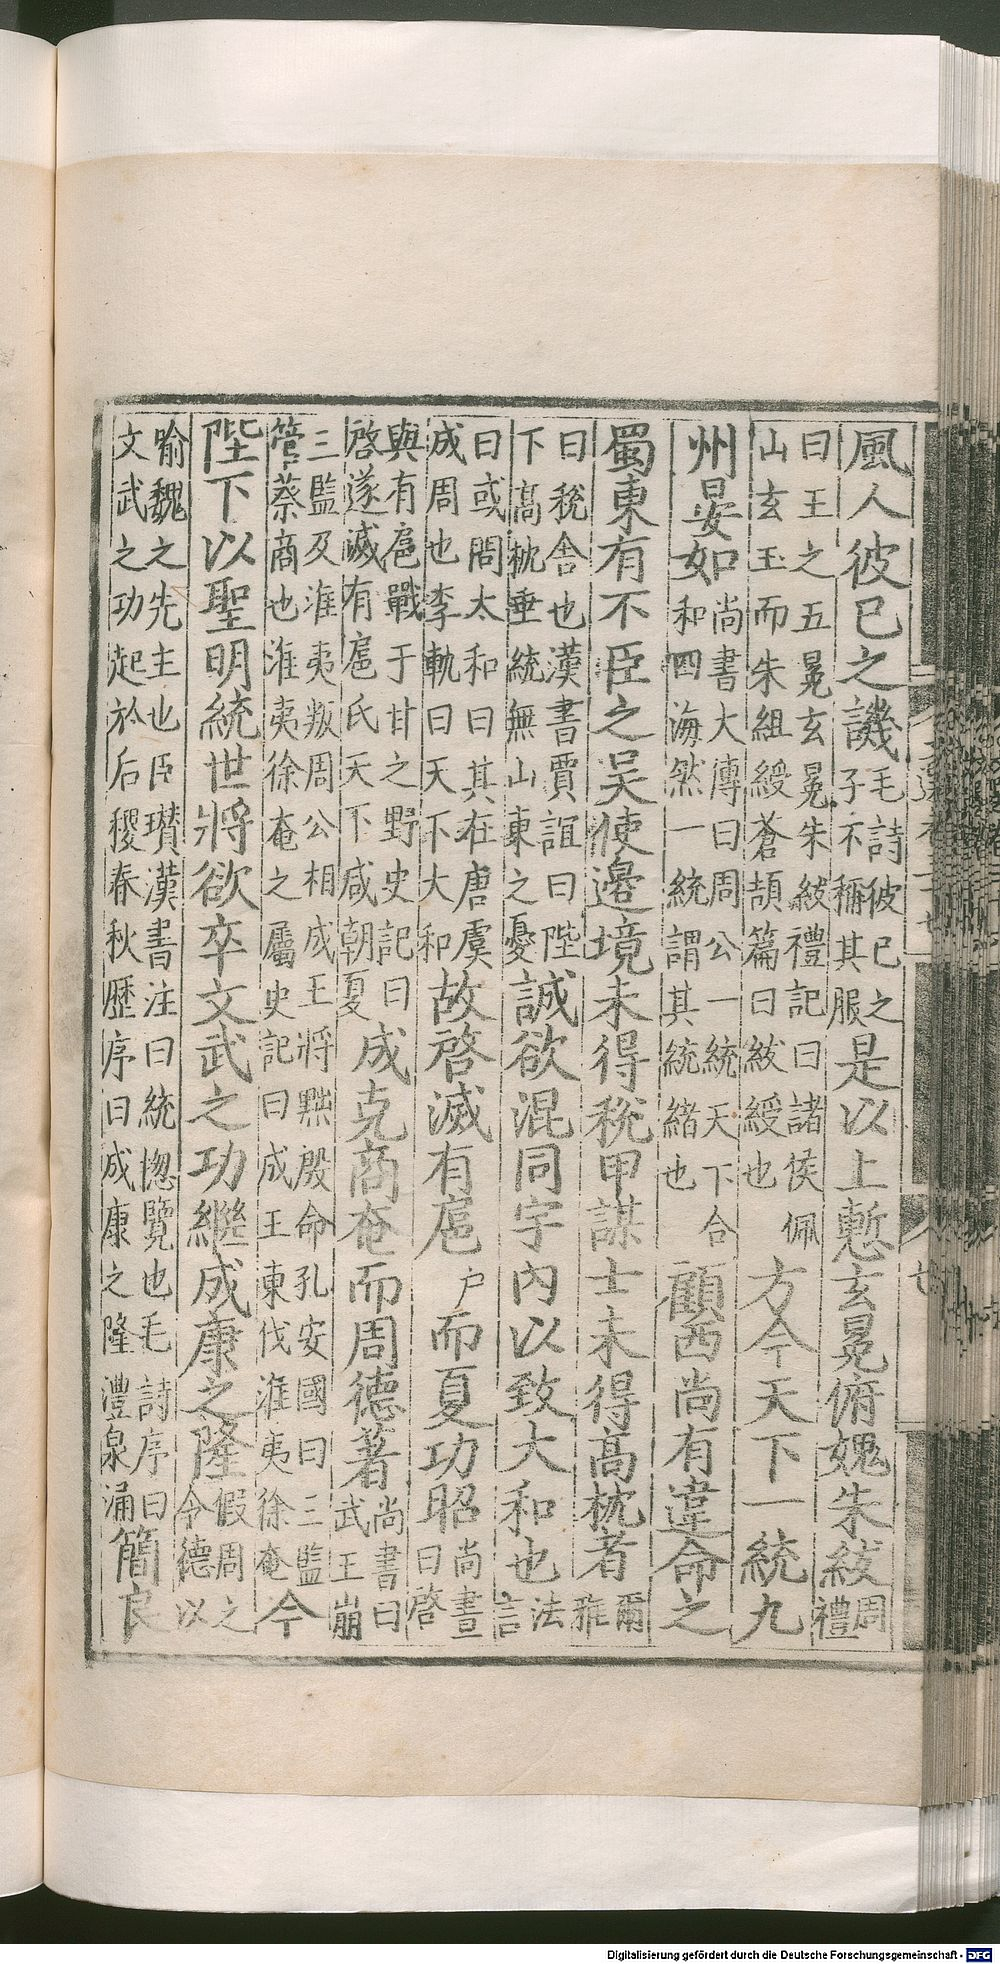 風人彼已之譏毛詩彼已之子不稱其服是以上慙玄冕俯媿朱紱周禮
曰王之五冕玄冕朱紱禮記曰諸侯佩山玄玉而朱組綬蒼頡篇曰紱綬也方今天下一統九
州晏如尚書大傳曰周公一統天下合和四海然一統謂其統緒也顧西尚有違命之
蜀東有不臣之吳使邊境未得稅甲謀士未得高枕者爾雅
曰稅舍也漢書賈誼曰陛下高枕垂統無山東之憂誠欲混同宇內以致大和也法言
曰或問太和曰其在唐虞成周也李軌曰天下大和故啓滅有扈户而夏功昭尚書曰啓
與有扈戰于甘之野史記曰啓遂滅有扈氏天下咸朝夏成克商奄而周德著尚書曰武王崩
三監及淮夷叛周公相成王將黜殷命孔安國曰三監管蔡商也淮夷徐奄之屬史記曰成王東伐淮夷徐奄今
陛下以聖明統世將欲卒文武之功繼成康之隆假周之令德以
喻魏之先主也臣瓚漢書注曰統揔覽也毛詩序曰文武之功起於后稷春秋歷序曰成康之隆澧泉涌簡良
Digitalisierung gefördert durch die Deutsche Forschungsgemeinschaft - DFG